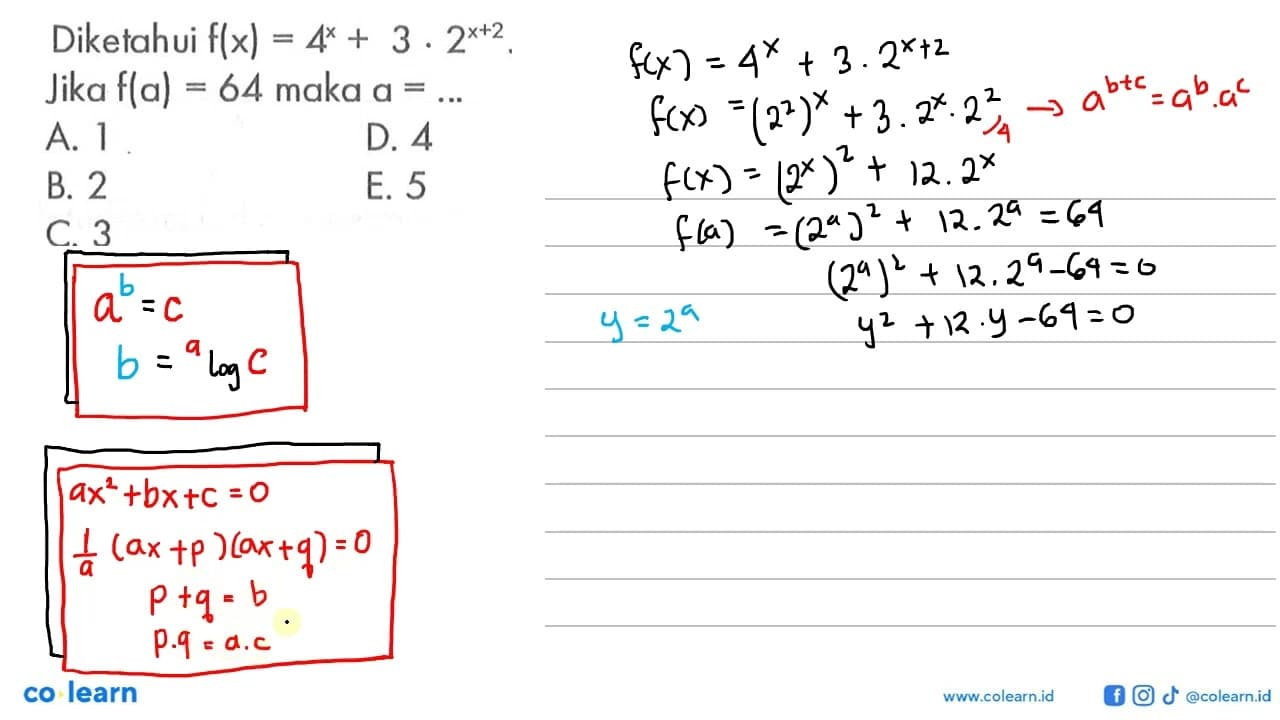 Diketahui f(x) = 4ˣ + 3 . 2ˣ⁺².
Jika f(a) = 64 maka a = ...
A. 1 D. 4
B. 2 E. 5
C. 3
aᵇ = c
b = ᵃlog c
ax² + bx + c = 0
1/a (ax + p)(ax + q) = 0
p + q = b
p.q = a.c
f(x) = 4ˣ + 3 . 2ˣ⁺²
f(x) = (2²)ˣ + 3 . 2ˣ . 2² 4 → aᵇ⁺ᶜ = aᵇ . aᶜ
f(x) = (2ˣ)² + 12 . 2ˣ
f(a) = (2ᵃ)² + 12 . 2ᵃ = 64
(2ᵃ)² + 12 . 2ᵃ - 64 = 0
y = 2ᵃ y² + 12 . y - 64 = 0
co learn
www.colearn.id @colearn.id